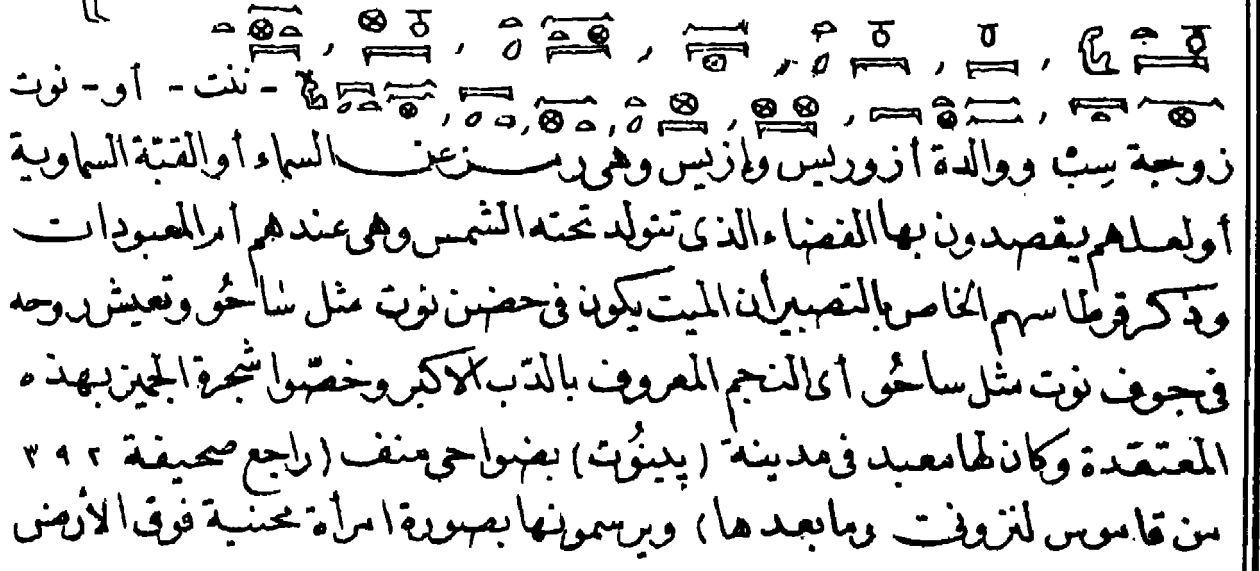 - ننت - أو - نوت
زوجة سِبْ ووالدة أزوريس وإزيس وهى رمز عن السماء أو القبّة السماوية
أو لعلهم يقصدون بها الفضاء الذى تتولد تحته الشمس وهى عندهم أم المعبودات
وذكر قرطاسهم الخاص بالتصبير أن الميت يكون فى حضن نوت مثل ساحُو وتعيش روحه
فى جوف نوت مثل ساحُو أى النجم المعروف بالدّب الاكبر وخصّوا شجرة الجميز بهذه
المعتقدة وكان لها معبد فى مدينة (پينُوت) بضواحى منف (راجع صحيفة ٣٩٢
من قاموس لنزونى وما بعدها) ويرسمونها بصورة امرأة محنية فوق الأرض